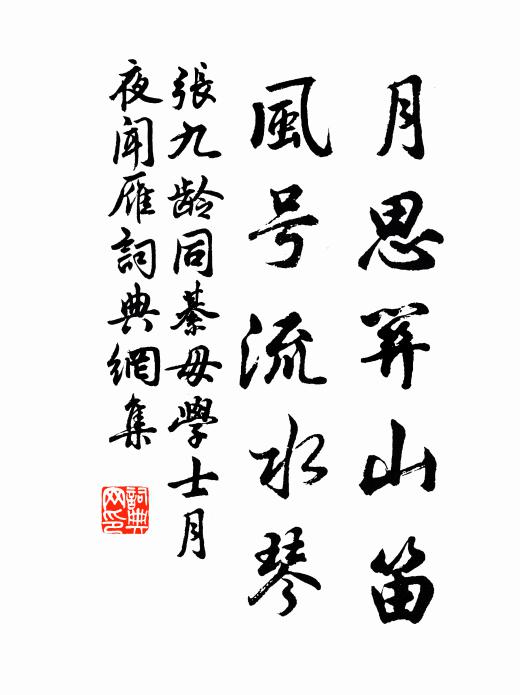 月思関山笛
風号流水琴
張九齡同綦毋學士月
夜闻雁詞典網集
詞典网印